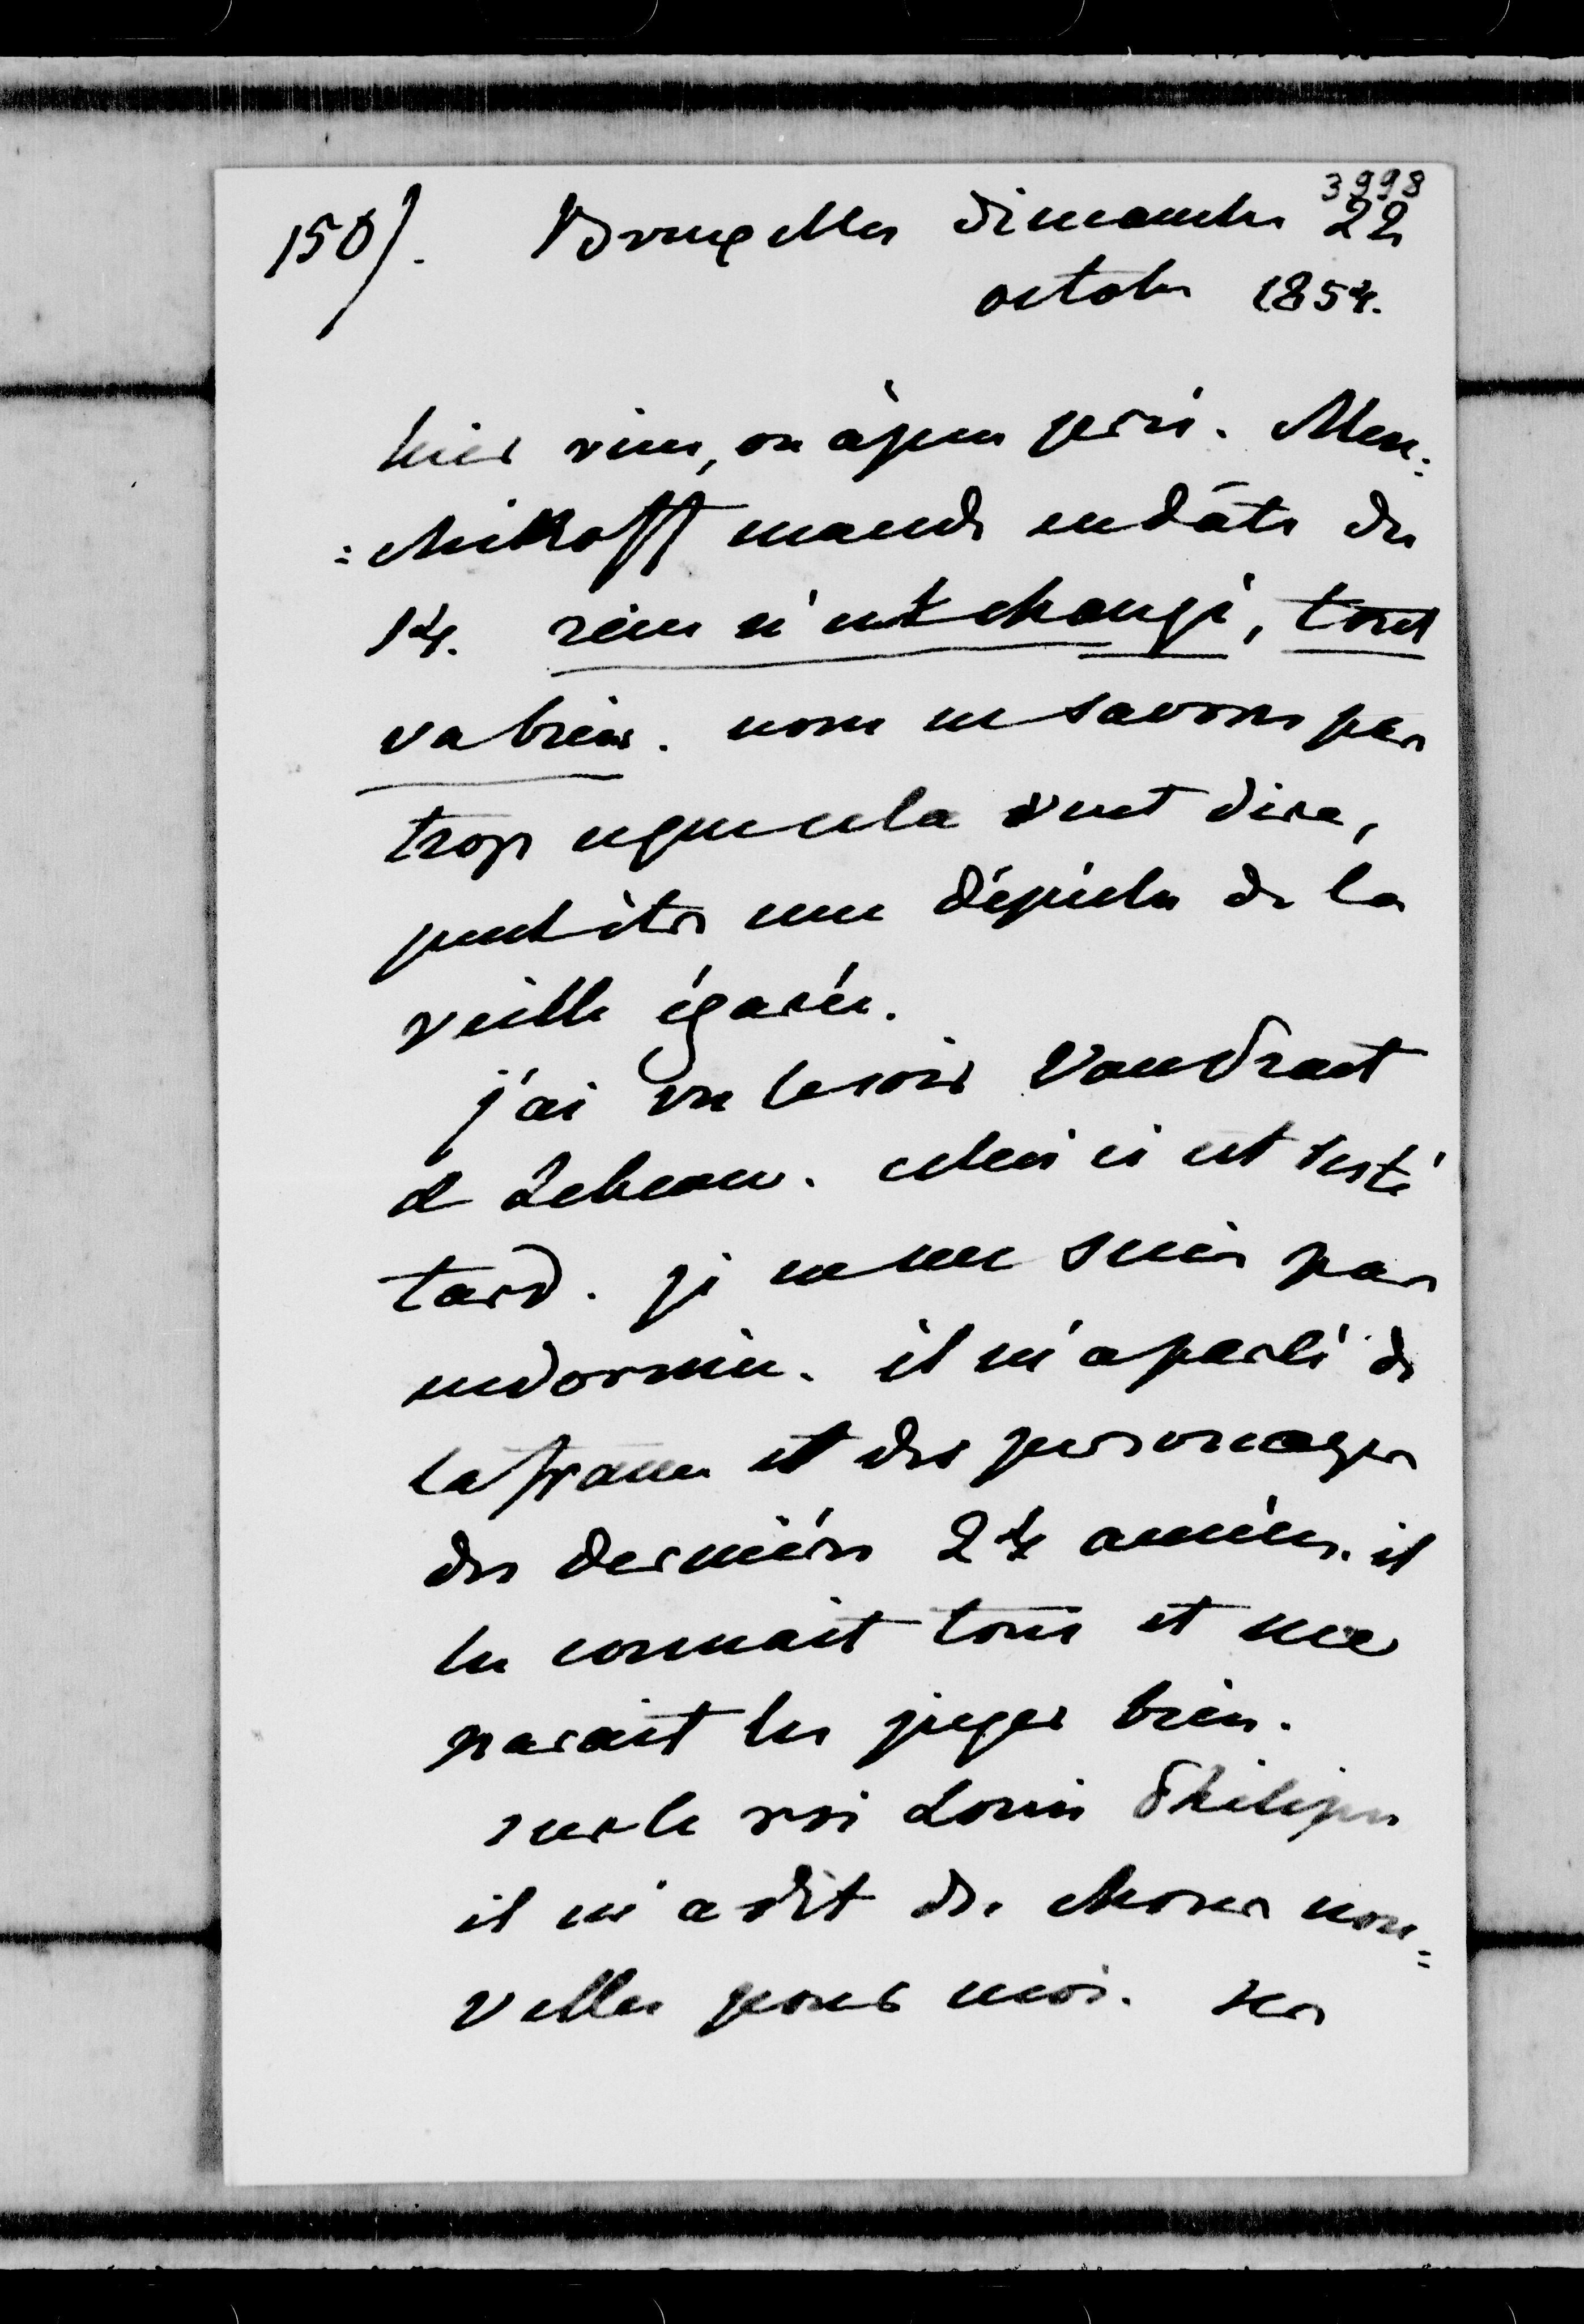 3998
150/. Bruxelles dimanche 22
octobre 1854.
hier rien, ou à peu près. Men=
=chikoff mande en dâte du
14. rien n'est changé, tout
va bien. nous ne savons pas
trop ce que cela veut dire,
peut être une dépèche de la
veille égarée.
j'ai vu le soir Vandraet
& Lebeau. celui ci est resté
tard. je ne me suis pas
endormie. il m'a parlé de
la france et des personages
des dernières 24 années. il
les connait tous et me
parait les juger bien.
sur le roi Louis Philippe
il m'a dit des choses nou=
velles pour moi. ses